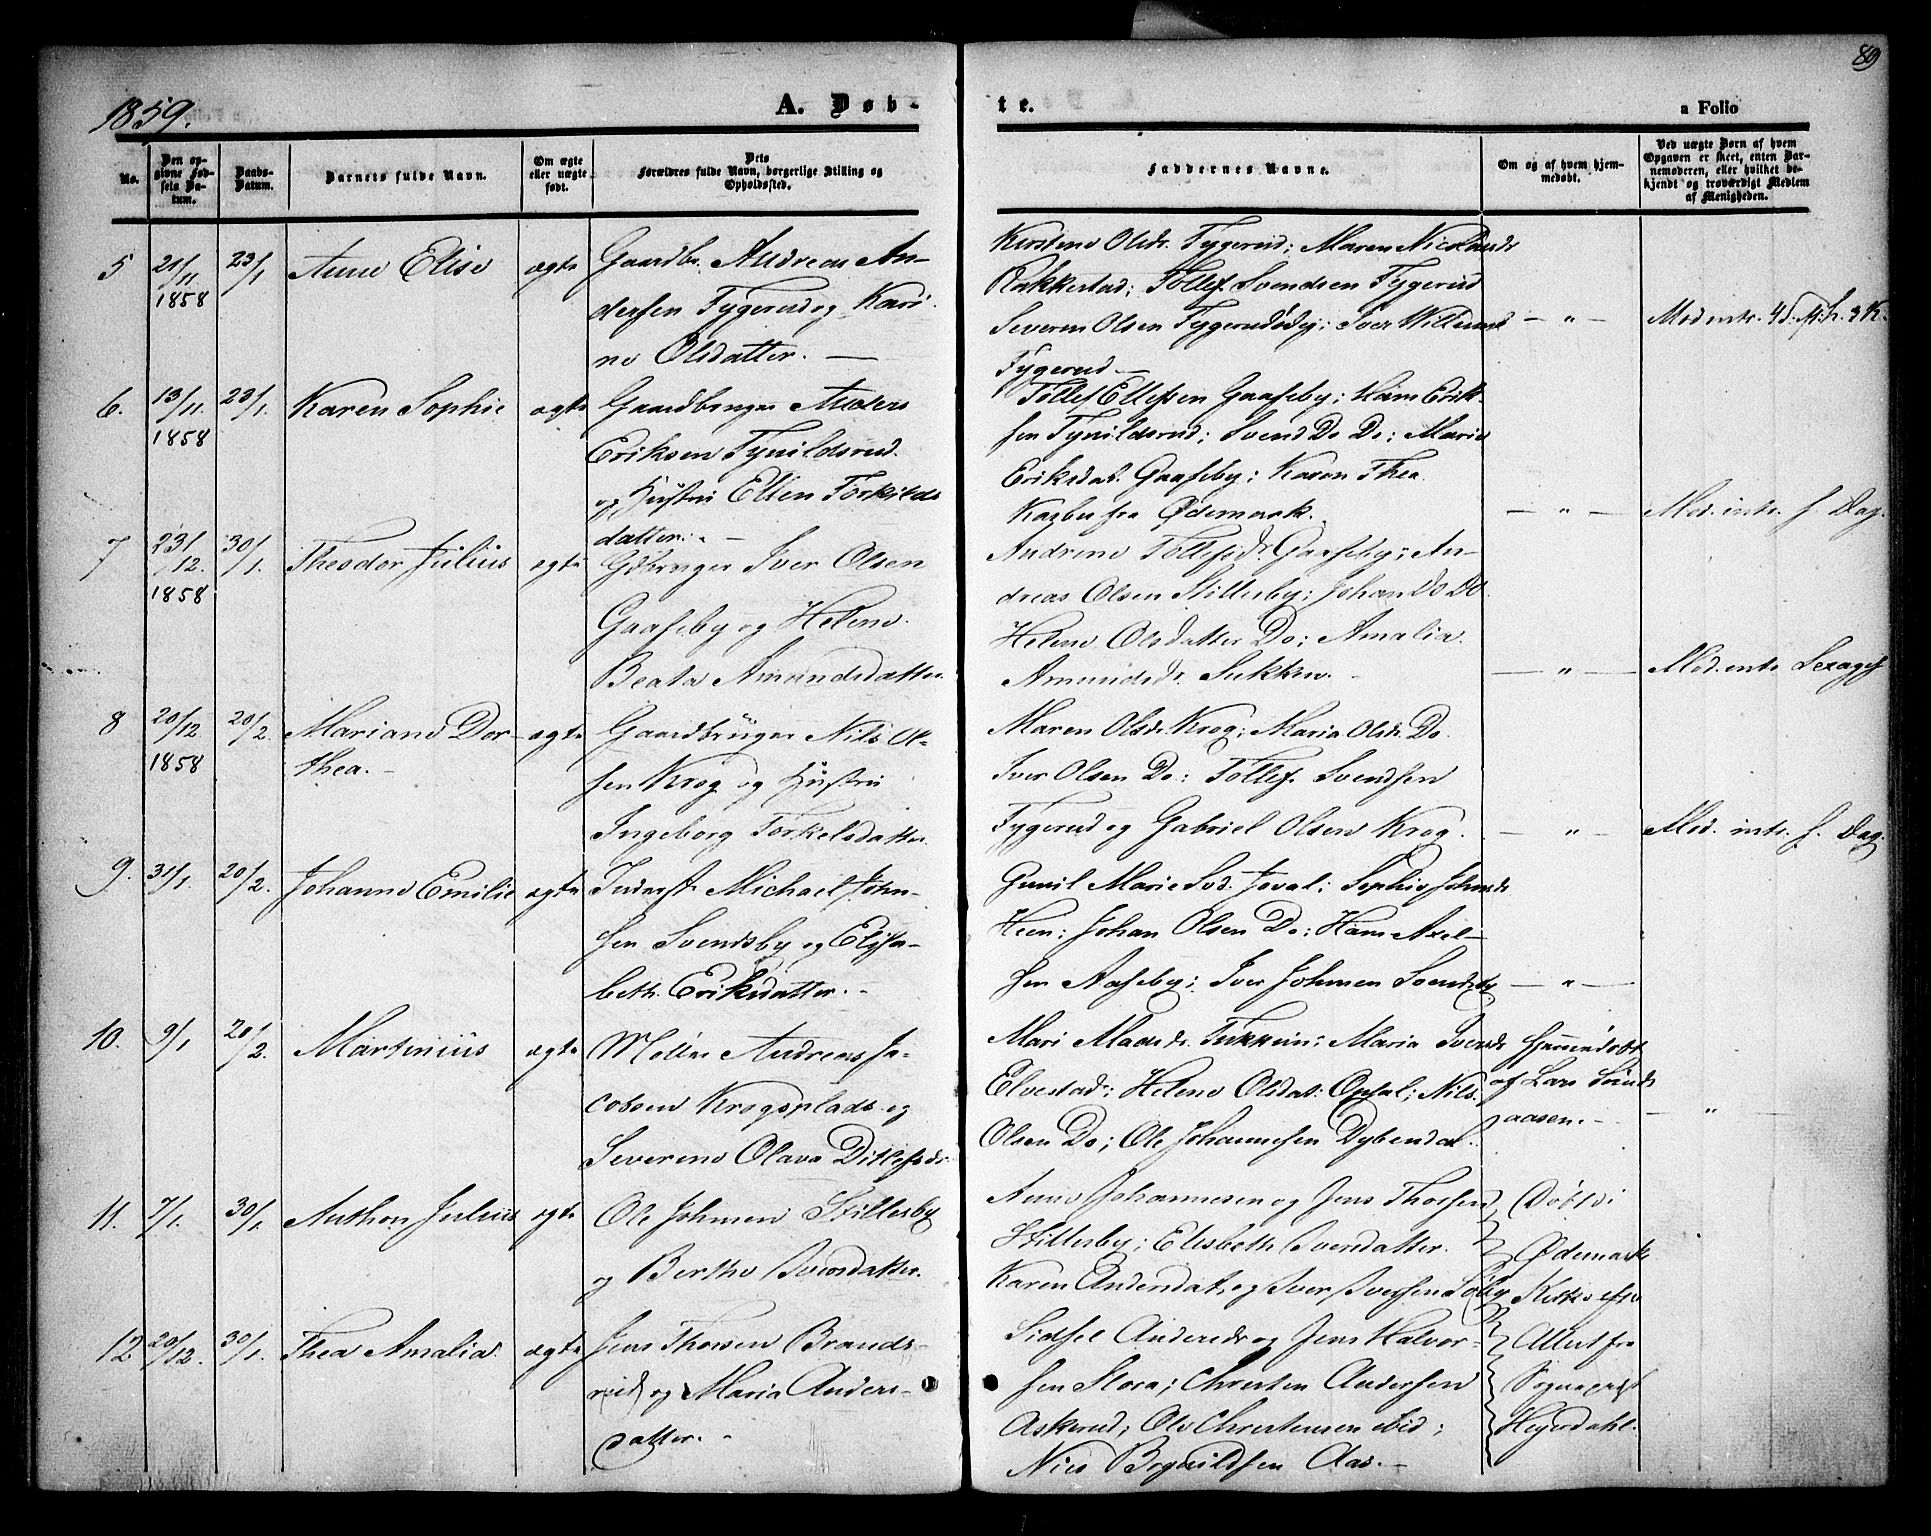 89
1859.
A. Døb-
te.
a Folio
No.
Den op-
givne Fød-
sels Da-
tum.
Daabs-
Datum.
Barnets fulde Navn.
Om ægte
eller uægte
født.
Dets
Forældres fulde Navn, borgerlige Stilling og
Opholdssted.
Faddernes Navne.
Om og af hvem hjem-
medøbt.
Ved uægte Børn af hvem
Opgaven er skeet, enten Bar-
nemoderen, eller hvilket be-
kjendt og troværdigt Medlem
af Menigheden.
5
21/11
1858
23/1
Anne Elise
ægte
Gaardbr. Andreas An-
dersen Tygerud og Kari-
ne Olsdatter. —
Kirstine Olsdr. Tygerud; Maren
Rakkestad; Tollef Svendsen Tygerud
Severin Olsen Tygerudødg; Iver
Tygerud —
— " —
Mod. intr.
6.
13/11.
1858
23/1.
Karen Sophie
ægte
Gaardbruger Anders
Eriksen Tynildsrud
og Hustru Ellen Torkilds
datter. —
Tollef Ellefsen Gaaseby; Hans Erik-
sen Tynildsrud; Svend Do Do; Marie
Eriksdat. Gaaseby; Karen Thea
fra Ødemark.
— " —
Mod. intr. s. Dag.
7
23/12.
1858
30/1.
Theodor Julius
ægte
Gdbruger Iver Olsen
Gaaseby og Helene
Beata Amundsdatter
Andrine Tollefsdr Gaaseby; An-
dreas Olsen Stillesby; Johan Do Do
Helene Olsdatter Do; Amalia
Amundsdr. Sukken. -
— " —
Mod. intr. Sexages
8
20/12
1858
20/2.
Mariane Dor-
thea. -
ægte
Gaardbruger Nils Ol-
sen Krog og Hustru
Ingeborg Torkelsdatter.
Maren Olsdr. Krog; Maria Olsdr. Do.
Iver Olsen Do; Tollef Svendsen
Tygerud og Gabriel Olsen Krog.
— " —
Mod. intr. s. Dag.
9.
31/1.
20/2.
Johanne Emilie
ægte
Inderst Michael John-
sen Svendsby og Elisa-
beth Eriksdatter. -
Gunil Marie Joval; Sophie Johnsdr
Heen; Johan Olsen Do; Hans Axel-
sen Aaseby; Iver Johnsen Svendsby
— " —
10.
9/1
20/2.
Martinius
ægte
Møller Andreas Ja-
cobsen Krogsplads og
Severine Olava Ditlefsdr.
Mari Madsdr. Tukkun; Maria Svendsdr
Elvestad; Helene Olsdat. Opsal; Nils
Olsen Do; Ole Johannesen Dybendal.
Hjemmedøbt
af Lars
aasen. -
— " —
11.
7/1.
30/1
Anthon Julius
ægte
Ole Johnsen Stillesby
og Berthe Iversdatter.
Anne Johannesen og Jens Thorsen
Stillesby; Elisbeth Iversdatter.
Karen Andersdat. og Iver Iversen Søby
Døbt i
Ødemark
Kirke efter
12
20/12.
30/1.
Thea Amalia.
ægte
Jens Thorsen Brands-
rud og Maria Anders-
datter. -
Sidsel Andersdr og Jens Halvor-
sen Flora; Christen Andersen
Askerud; Ole Christensen ibid;
Nils Bognildsen Aas. -
Attest fra
Sognepræst
Heyerdahl.